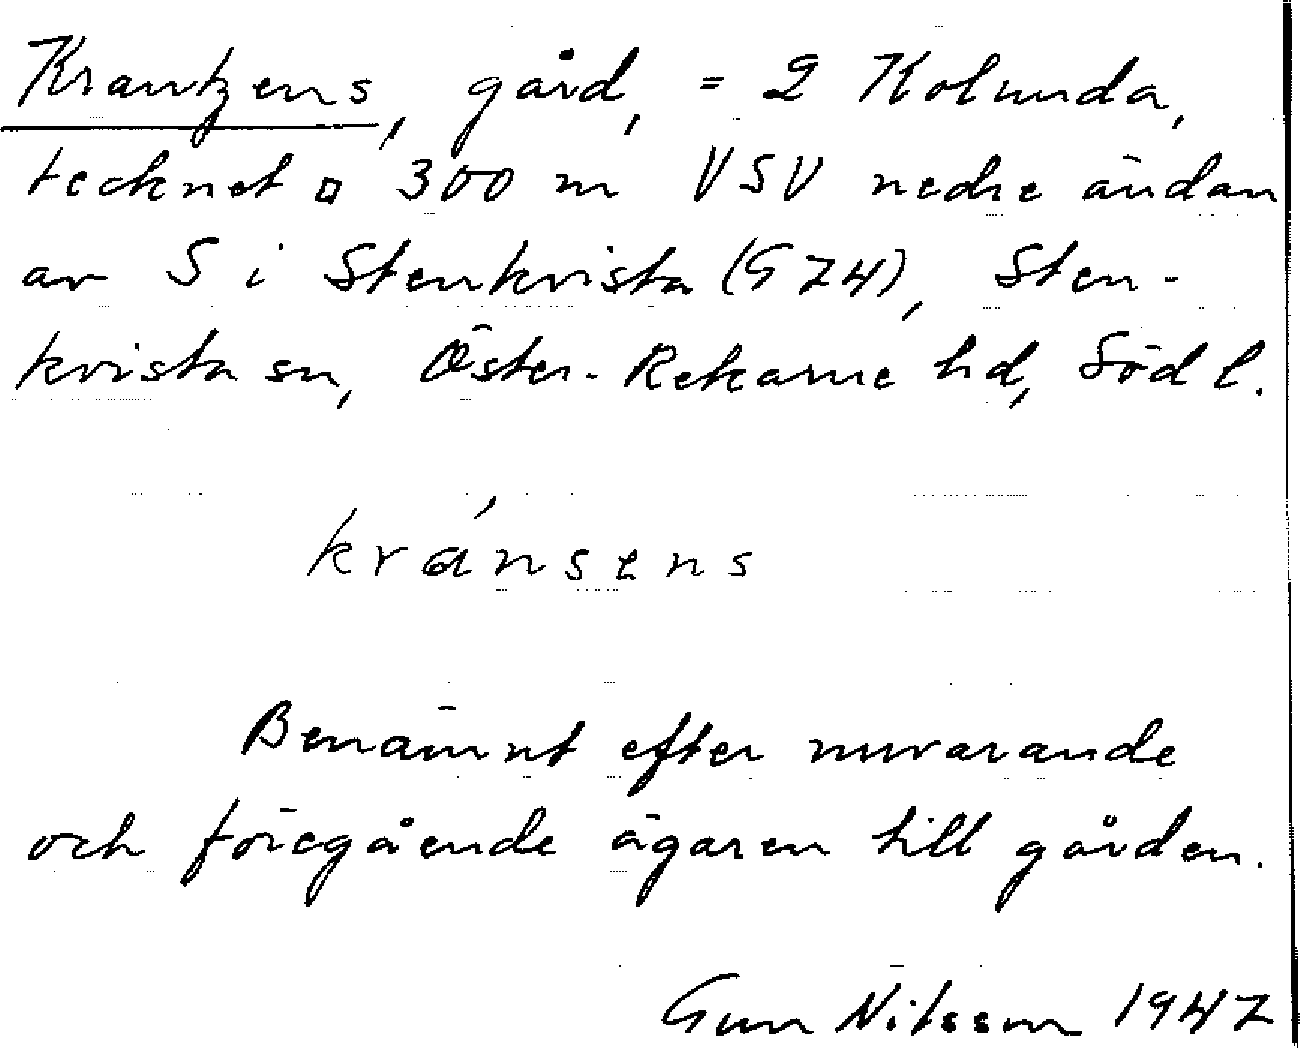 Krantzens, gård, = 2 Kolunda,
tecknet ▫ 300 m VSV nedre ändan
av S i Stenkvista (G 74), Sten-
kvista sn, Öster-Rekarne hd, Södl.
kránsens
Benämnt efter nuvarande
och föregående ägaren till gården.
Gun Nilsson 1947